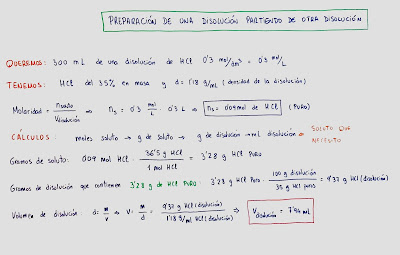 PREPARACIÓN DE UNA DISOLUCIÓN PARTIENDO DE OTRA DISOLUCIÓN
QUEREMOS: 300 mL de una disolución de HCl 0'3 mol/dm³ = 0'3 mol/L
TENEMOS: HCl del 35% en masa y d = 1'18 g/mL (densidad de la disolución)
Molaridad = n soluto / V disolución ⇒ ns = 0'3 mol/L · 0'3 L ⇒ ns = 0'09 mol de HCl (PURO)
CÁLCULOS: moles soluto → g de soluto → g de disolución → mL disolución ⇒ SOLUTO QUE NECESITO
Gramos de soluto: 0'09 mol HCl · 36'5 g HCl / 1 mol HCl = 3'28 g HCl PURO
Gramos de disolución que contienen 3'28 g de HCl PURO: 3'28 g HCl PURO · 100 g disolución / 35 g HCl puros = 9'37 g HCl (disolución)
Volumen de disolución: d = m/v ⇒ V = m/d = 9'37 g HCl (disolución) / 1'18 g/mL HCl (disolución) ⇒ V disolución = 7'94 mL